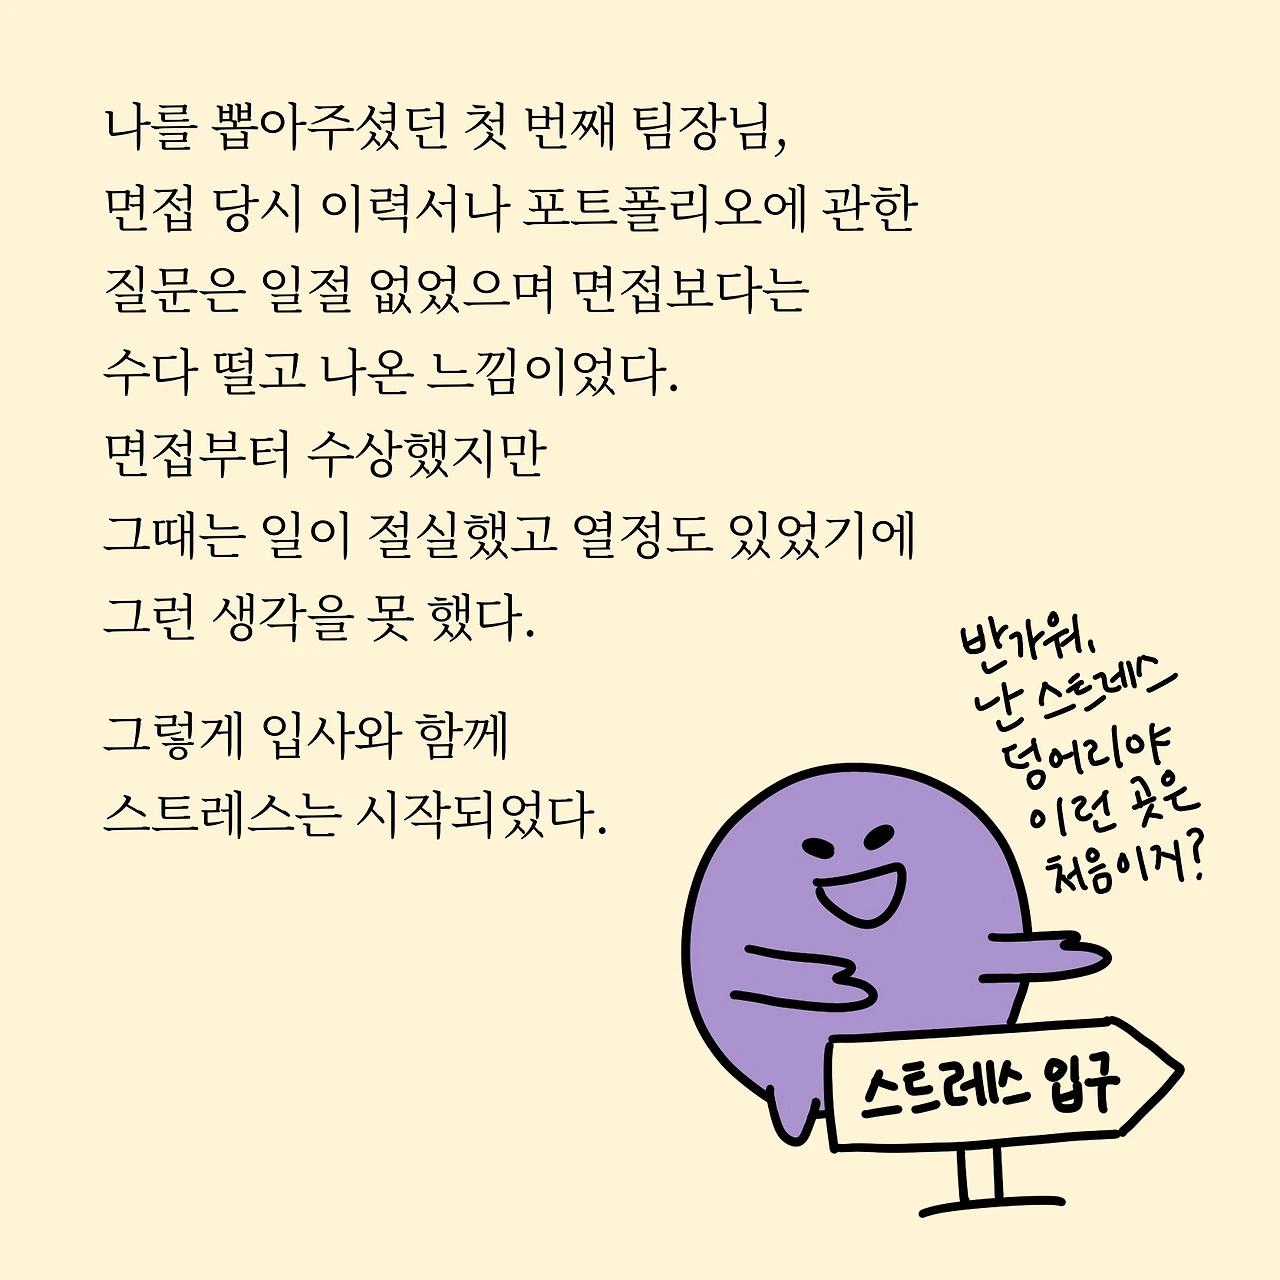 나를 뽑아주셨던 첫 번째 팀장님,
면접 당시 이력서나 포트폴리오에 관한
질문은 일절 없었으며 면접보다는
수다 떨고 나온 느낌이었다.
면접부터 수상했지만
그때는 일이 절실했고 열정도 있었기에
그런 생각을 못 했다.
그렇게 입사와 함께
스트레스는 시작되었다.
반가워,
난 스트레스
덩어리야
이런 곳은
처음이지?
스트레스 입구